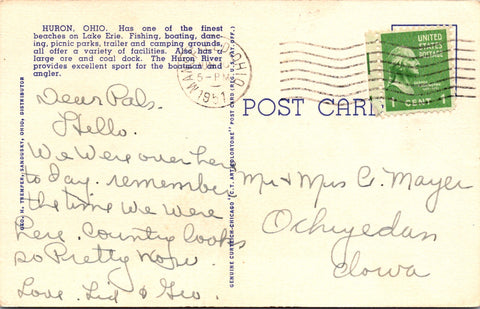 HURON, OHIO. Has one of the finest
beaches on Lake Erie. Fishing, boating, danc-
ing, picnic parks, trailer and camping grounds,
all offer a variety of facilities. Also has a
large ore and coal dock. The Huron River
provides excellent sport for the boatman and
angler.
Dear Pals.
Hello.
We Were over here
to day. remember
the time We Were
here. Country looks
so Pretty Now.
Love. Lid & Geo.
GEO. H. THEMFER, SANDUSKY, OHIO, DISTRIBUTOR
GENUINE CURTEICH-CHICAGO "C.T. ART-COLORTONE" POST CARD (REG. U.S. PAT. OFF.)
OHIO
5-PM
1951
UNITED
STATES
POSTAGE
1 CENT 1
POST CARD
Mr & Mrs C. Mayer
Ocheyedan
Iowa